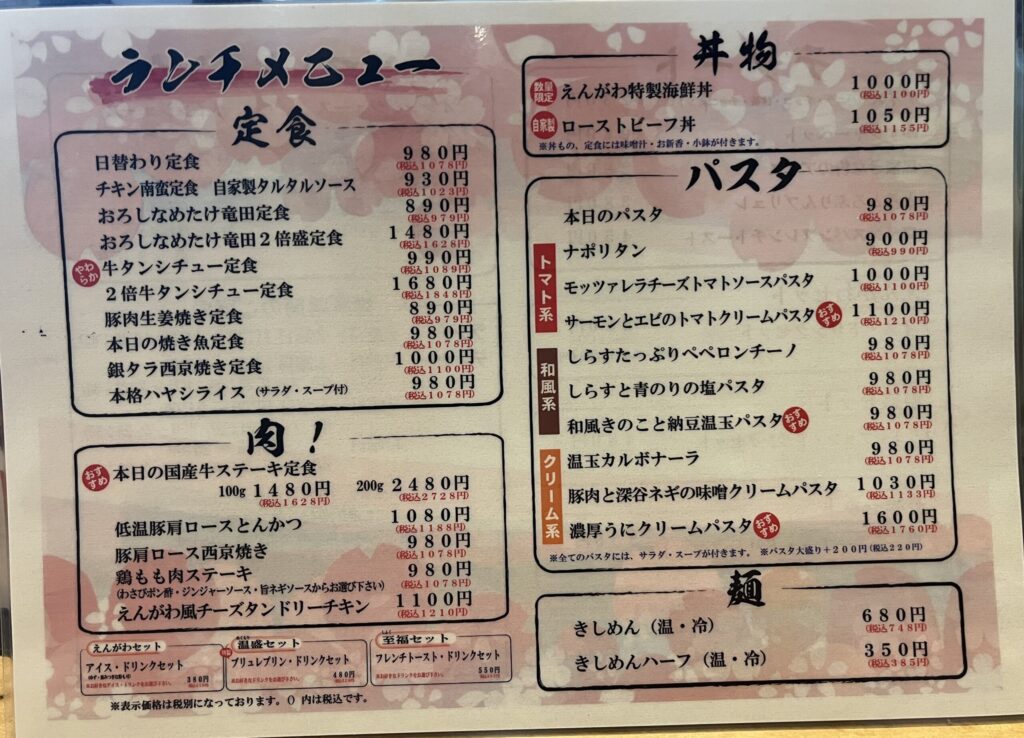 ランチメニュー
定食
日替わり定食 980円 (税込1078円)
チキン南蛮定食 自家製タルタルソース 930円 (税込1023円)
おろしなめたけ竜田定食 890円 (税込979円)
おろしなめたけ竜田2倍盛定食 1480円 (税込1628円)
やわらか 牛タンシチュー定食 990円 (税込1089円)
2倍牛タンシチュー定食 1680円 (税込1848円)
豚肉生姜焼き定食 890円 (税込979円)
本日の焼き魚定食 980円 (税込1078円)
銀タラ西京焼き定食 1000円 (税込1100円)
本格ハヤシライス(サラダ・スープ付) 980円 (税込1078円)
肉!
おすすめ 本日の国産牛ステーキ定食
100g 1480円 (税込1628円) 200g 2480円 (税込2728円)
低温豚肩ロースとんかつ 1080円 (税込1188円)
豚肩ロース西京焼き 980円 (税込1078円)
鶏もも肉ステーキ 980円 (税込1078円)
(わさびポン酢・ジンジャーソース・旨ネギソースからお選び下さい)
えんがわ風チーズタンドリーチキン 1100円 (税込1210円)
えんがわセット
アイス・ドリンクセット
380円
温盛セット
ブリュレプリン・ドリンクセット
480円
至福セット
フレンチトースト・ドリンクセット
550円
※表示価格は税別になっております。() 内は税込です。
丼物
数量限定 えんがわ特製海鮮丼 1000円 (税込1100円)
自家製 ローストビーフ丼 1050円 (税込1155円)
※丼もの、定食には味噌汁・お新香・小鉢が付きます。
パスタ
本日のパスタ 980円 (税込1078円)
トマト系
ナポリタン 900円 (税込990円)
モッツァレラチーズトマトソースパスタ 1000円 (税込1100円)
サーモンとエビのトマトクリームパスタ おすすめ 1100円 (税込1210円)
和風系
しらすたっぷりペペロンチーノ 980円 (税込1078円)
しらすと青のりの塩パスタ 980円 (税込1078円)
和風きのこと納豆温玉パスタ おすすめ 980円 (税込1078円)
クリーム系
温玉カルボナーラ 980円 (税込1078円)
豚肉と深谷ネギの味噌クリームパスタ 1030円 (税込1133円)
濃厚うにクリームパスタ おすすめ 1600円 (税込1760円)
※全てのパスタには、サラダ・スープが付きます。 ※パスタ大盛り+200円(税込220円)
麺
きしめん(温・冷) 680円 (税込748円)
きしめんハーフ(温・冷) 350円 (税込385円)